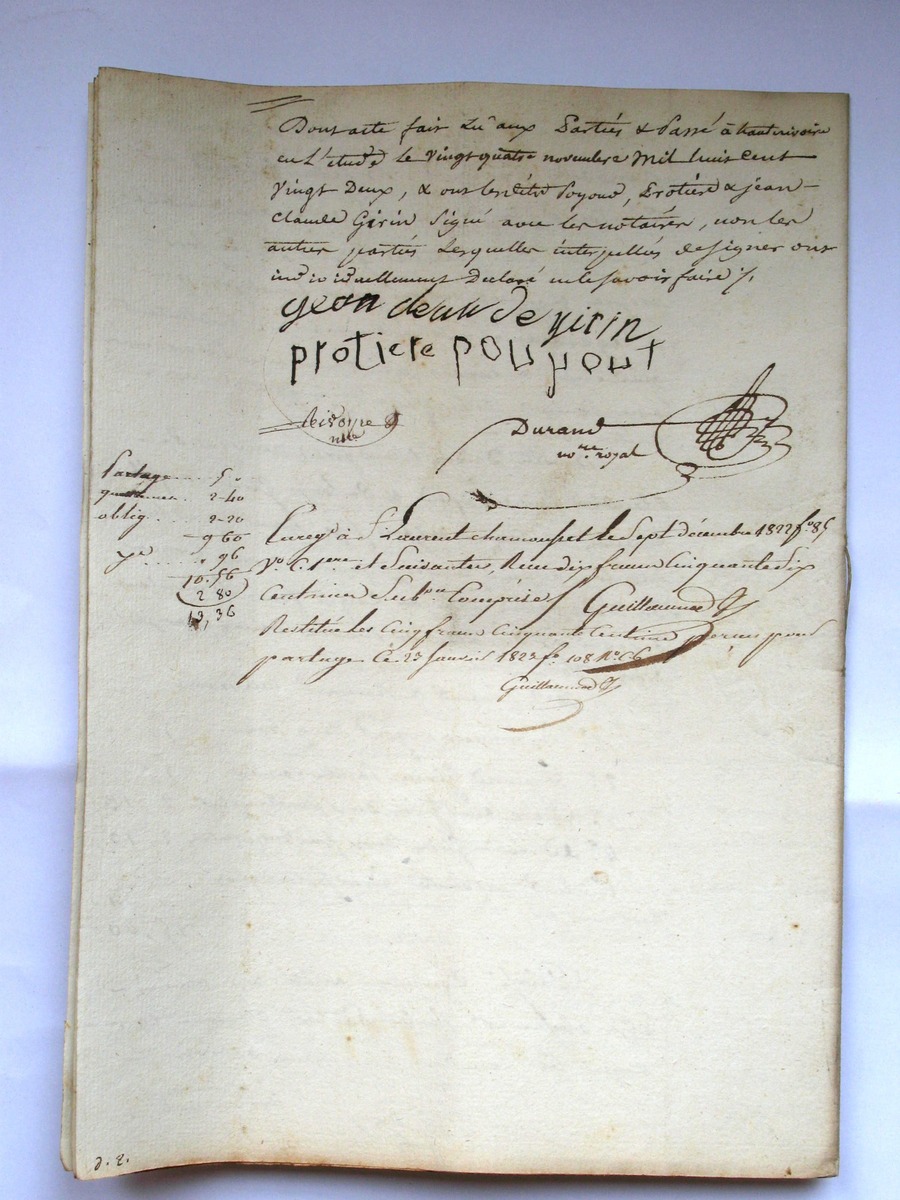 Dont acte fait Lu aux Parties & Passé à hauterivoire
en L'étude le vingt quatre novembre Mil huit cent
vingt Deux, & ont les dits Poyoud, Protiere & jean
claude Girin Signé avec les notaires, non les
autres parties Lesquelles interpellés de signer ont
individuellement Declaré ne le savoir faire ./.
gean claude girin
protiere pouyout
nre
Durand
nore royal
Partage .... 5 "
quittance . 2-40
oblig .... 2-20
9 60
.. 96
10.56
2 80
13,36
Enregé à St Laurent chamousset le Sept décembre 1822 fo 85
Vo C. 1ere et Suivantes, Reçu dix francs Cinquante Six
Centimes Subon Comprise Guillaumod
Restitué les Cinq francs Cinquante Centimes perçus pour
partage Ce 23 Janvier 1823 fo 108 No C6
Guillaumod
d. 2.